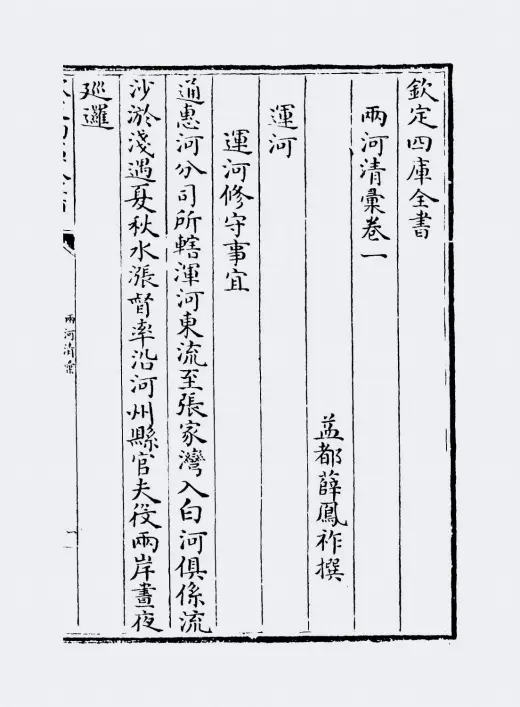 欽定四庫全書
兩河清彙卷一
益都薛鳳祚撰
運河
運河修守事宜
通惠河分司所轄渾河東流至張家灣入白河俱係流
沙淤淺遇夏秋水漲督率沿河州縣官夫役兩岸晝夜
廵邏
兩河清彙
一